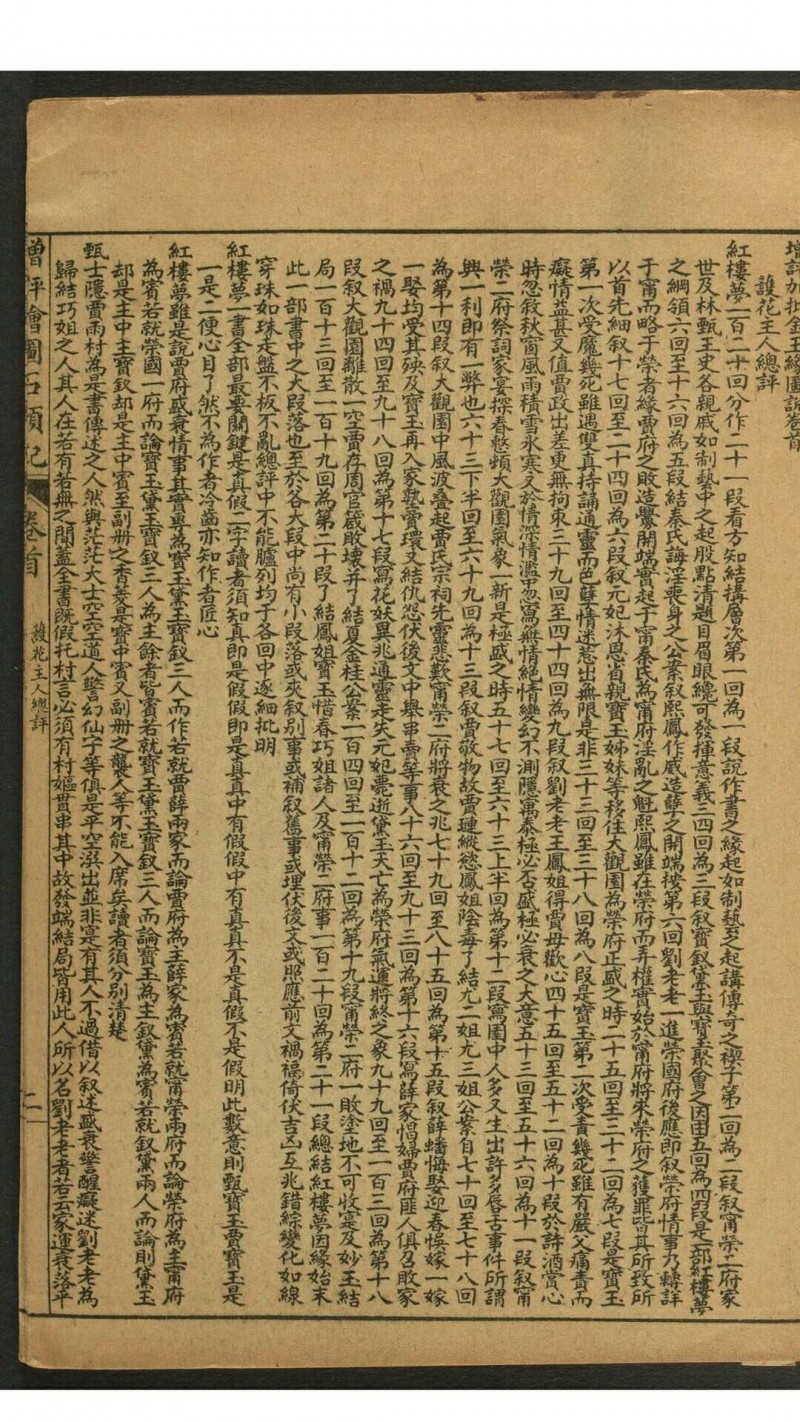 增評加批金玉緣圖說卷首
護花主人總評
紅樓夢一百二十回分作二十一段看方知結構層次第一回為一段說作書之緣起如制藝之起講傳奇之楔子第二回為二段叙甯榮二府家
世及林甄王史各親戚如制藝中之起股點清題目眉眼纔可發揮意義三四回為三段叙寶釵黛玉與寶玉聚會之因由五回為四段是一部紅樓夢
之綱領六回至十六回為五段結秦氏誨淫喪身之公案叙熙鳳作威造孽之開端按第六回劉老老一進榮國府後應即叙榮府情事乃轉詳
于甯而略于榮者緣賈府之敗造釁開端實起于甯秦氏為甯府淫亂之魁熙鳳雖在榮府而弄權實始於甯府將來榮府之獲罪皆其所致所
以首先細叙十七回至二十四回為六段叙元妃沐恩省親寶玉姊妹等移住大觀園為榮府正盛之時二十五回至三十二回為七段是寶玉
第一次受魔幾死雖遇雙真持誦通靈而色孽情迷惹出無限是非三十三回至三十八回為八段是寶玉第二次受責幾死雖有嚴父痛責而
癡情益甚又值賈政出差更無拘束三十九回至四十四回為九段叙劉老老王鳳姐得賈母歡心四十五回至五十二回為十段於詩酒賞心
時忽叙秋窗風雨積雪冰寒又於情深情濫中忽寫無情絕情變幻不測隱寓泰極必否盛極必衰之大意五十三回至五十六回為十一段叙甯
榮二府祭祠家宴探春整頓大觀園氣象一新是極盛之時五十七回至六十三上半回為第十二段寫園中人多又生出許多唇舌事件所謂
興一利即有一弊也六十三下半回至六十九回為十三段叙賈敬物故賈璉縱慾鳳姐陰毒了結尤二姐尤三姐公案自七十回至七十八回
為第十四段叙大觀園中風波疊起賈氏宗祠先靈悲歎甯榮二府將衰之兆七十九回至八十五回為第十五段叙薛蟠悔娶迎春悞嫁一嫁
一娶均受其殃及寶玉再入家塾賈環又結仇怨伏後文中舉串賣等事八十六回至九十三回為第十六段寫薛家悍婦賈府匪人俱召敗家
之禍九十四回至九十八回為第十七段寫花妖異兆通靈走失元妃薨逝黛玉夭亡為榮府氣運將終之象九十九回至一百三回為第十八
段叙大觀園離散一空賈存周官箴敗壞并了結夏金桂公案一百四回至一百十二回為第十九段甯榮二府一敗塗地不可收拾及妙玉結
局一百十三回至一百十九回為第二十段了結鳳姐寶玉惜春巧姐諸人及甯榮二府事一百二十回為第二十一段總結紅樓夢因緣始末
此一部書中之大段落也至於各大段中尚有小段落或夾叙別事或補叙舊事或埋伏後文或照應前文禍福倚伏吉凶互兆錯綜變化如線
穿珠如珠走盤不板不亂總評中不能臚列均于各回中逐細批明
紅樓夢一書全部最要關鍵是真假二字讀者須知真即是假假即是真真中有假假中有真真不是真假不是假明此數意則甄寶玉賈寶玉是
一是二便心目了然不為作者冷齒亦知作者匠心
紅樓夢雖是說賈府盛衰情事其實專為寶玉黛玉寶釵三人而作若就賈薛兩家而論賈府為主薛家為賓若就甯榮兩府而論榮府為主甯府
為賓若就榮國一府而論寶玉黛玉寶釵三人為主餘者皆賓若就寶玉黛玉寶釵三人而論寶玉為主釵黛為賓若就釵黛兩人而論則黛玉
却是主中主寶釵却是主中賓至副冊之香菱是賓中賓又副冊之襲人等不能入席矣讀者須分別清楚
甄士隱賈雨村為是書傳述之人然與茫茫大士空空道人警幻仙子等俱是平空撰出並非實有其人不過借以叙述盛衰警醒癡迷劉老老為
歸結巧姐之人其人在若有若無之間蓋全書既假托村言必須有村嫗貫串其中故發端結局皆用此人所以名劉老老者若云家運衰落平
增評會圖石頭記
卷首
護花主人總評
二